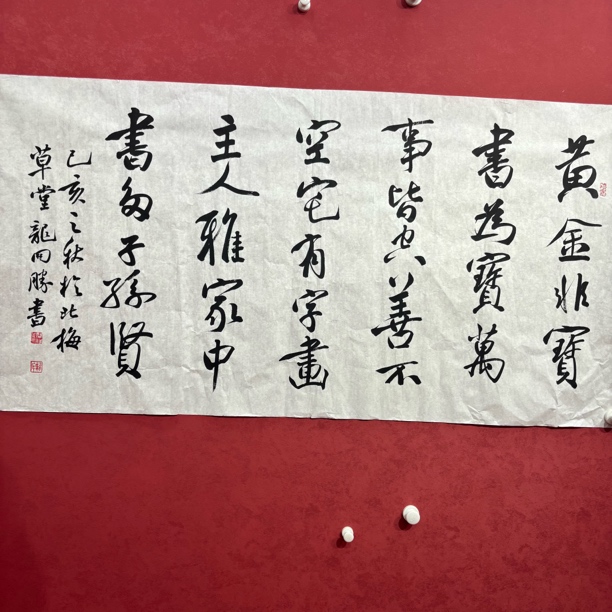 黃金非寶
書為寶萬
事皆空善不
空宅有字畫
主人雅家中
書多子孫賢
己亥之秋於北梅
草堂龍向勝書